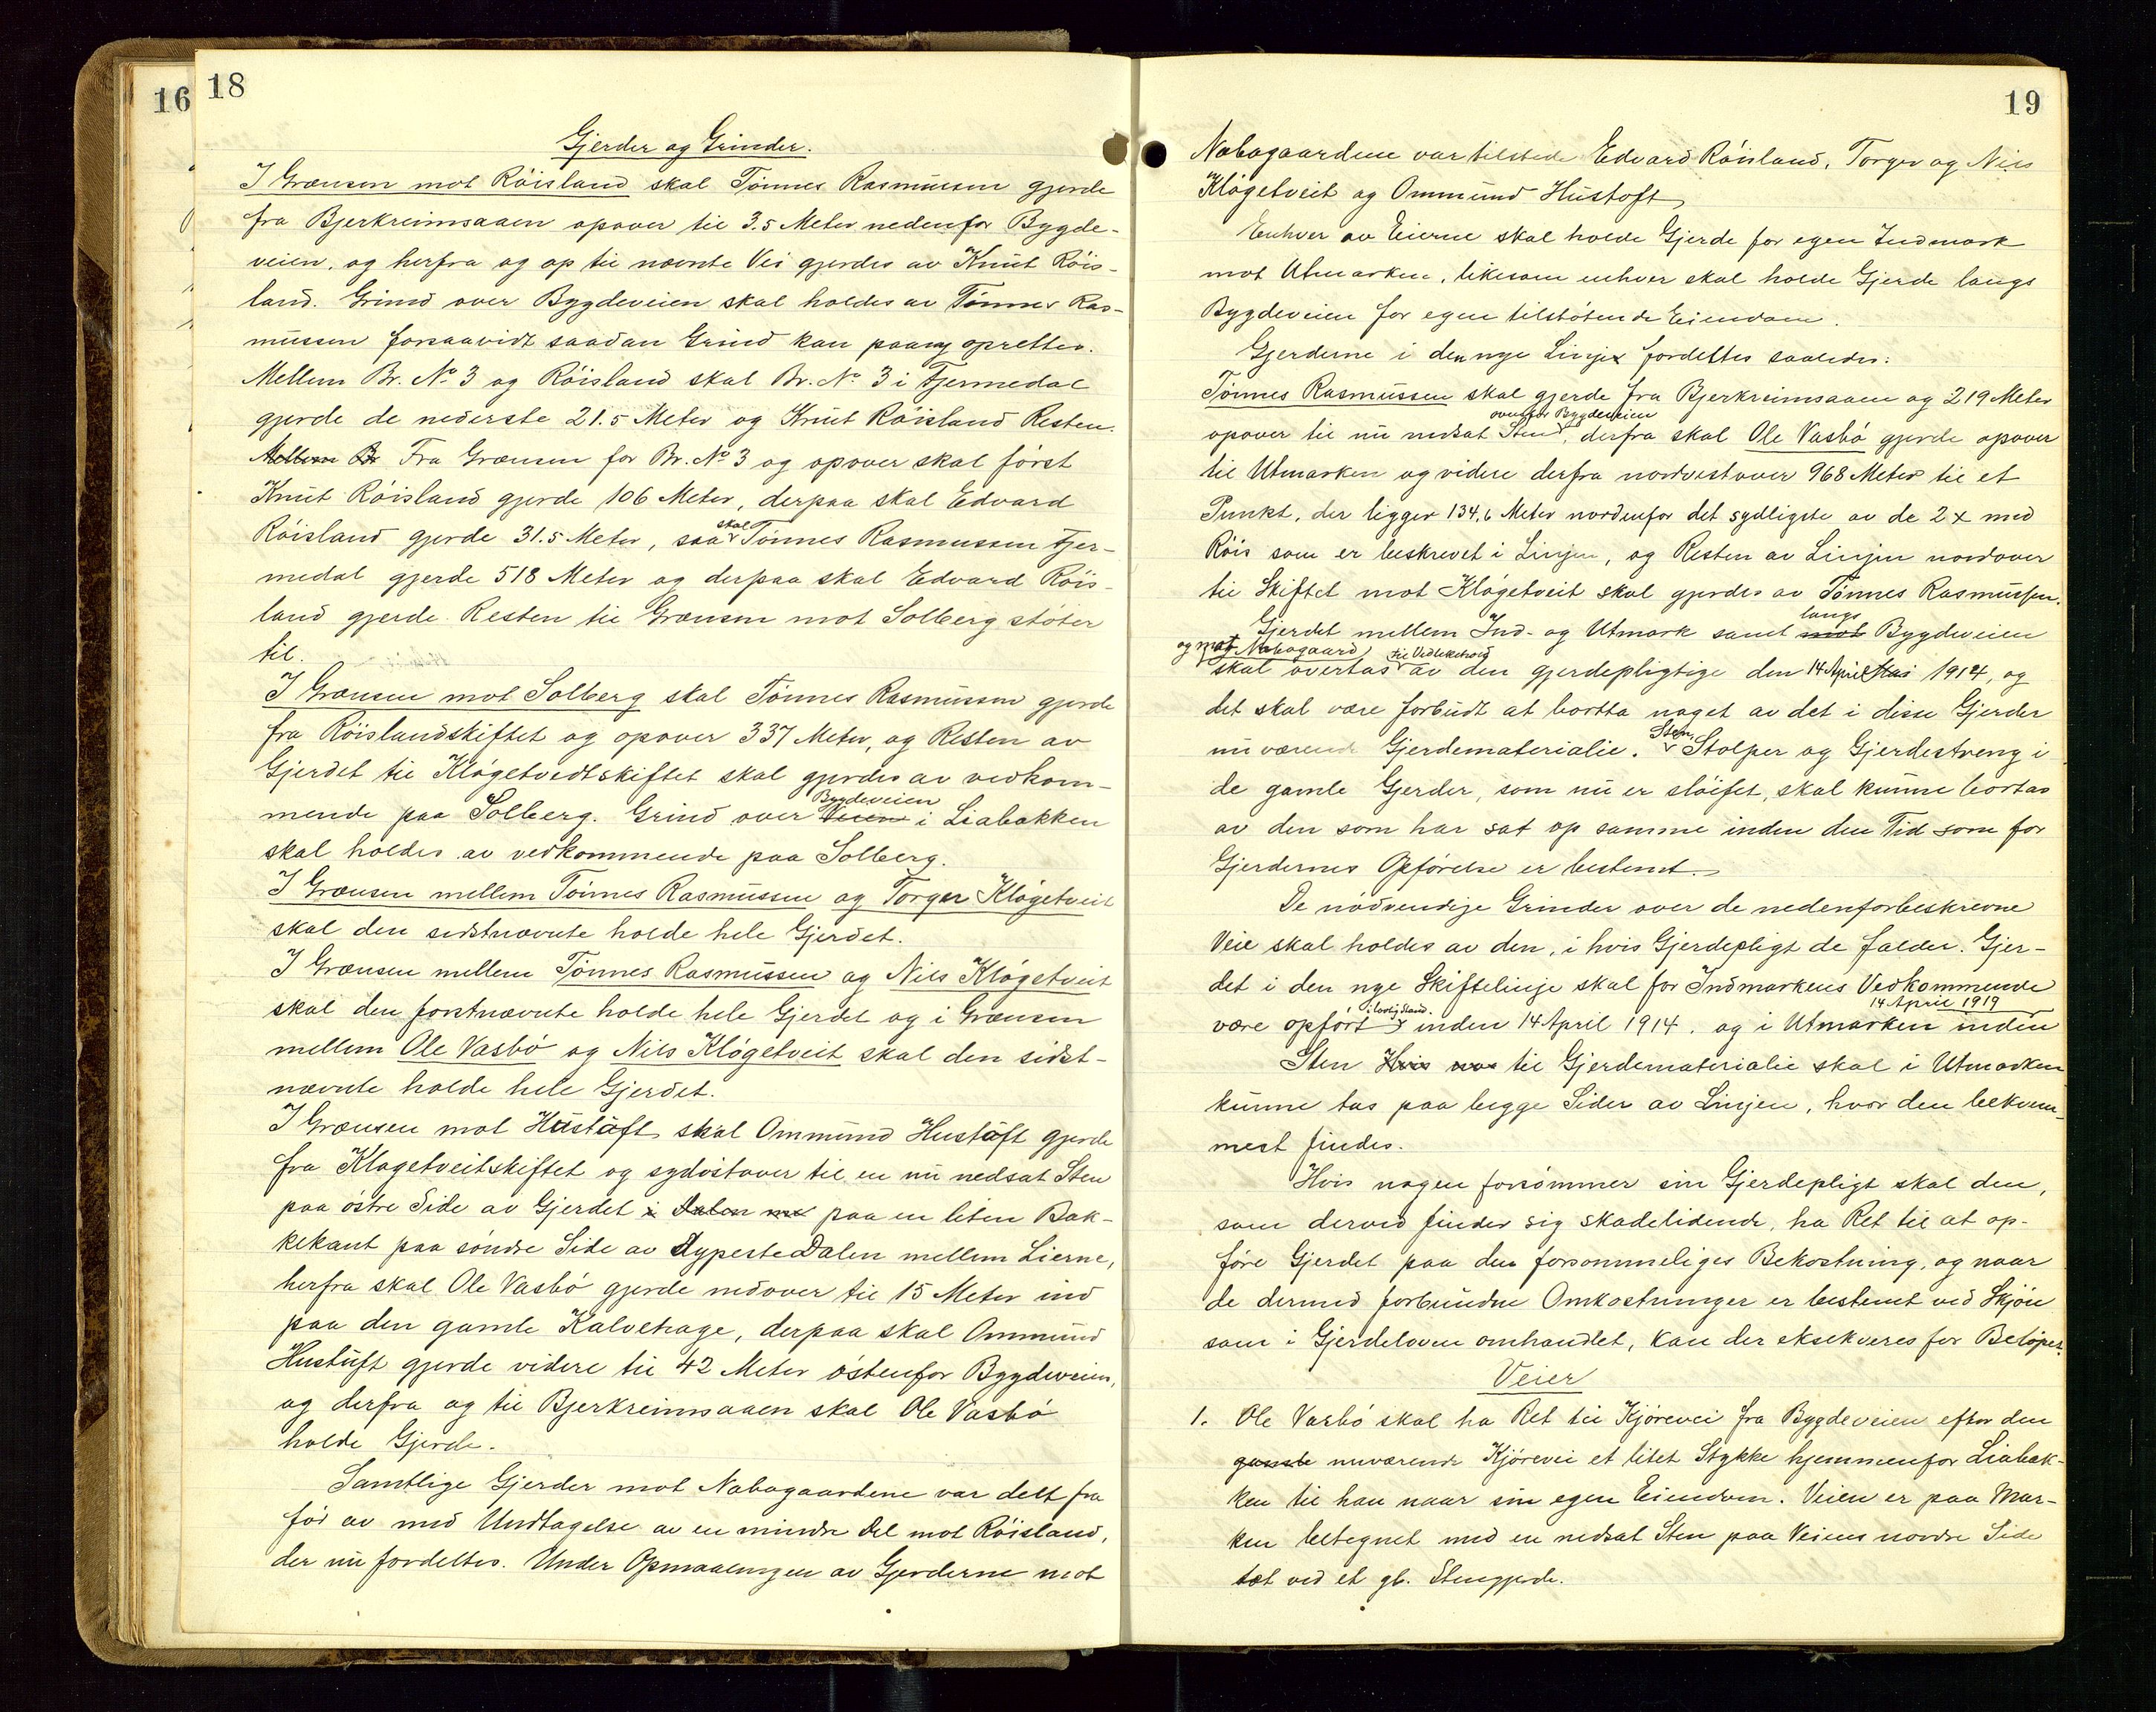 16
18
Gjerder og Grinder.
I Grænsen mot Röisland skal Tönnes Rasmussen gjerde
fra Bjerkreimsaaen opover til 3.5 Meter nedenfor Bygde-
veien, og herfra og op til nævnte Vei gjerdes av Knut Röis-
land. Grind over Bygdeveien skal holdes av Tönnes Ras-
mussen forsaavidt saadan Grind kan paany oprettes.
Mellem Br. No 3 og Röisland skal Br. No 3 i Fjermedal
gjerde de nederste 21.5 Meter og Knut Röisland Resten.
Mellem Br Fra Grænsen for Br. No 3 og opover skal först
Knut Röisland gjerde 106 Meter, derpaa skal Edvard
Röisland gjerde 31.5 Meter, saa skal Tönnes Rasmussen Fjer-
medal gjerde 518 Meter og derpaa skal Edvard Röis-
land gjerde Resten til Grænsen mot Solberg stöter
til.
I Grænsen mot Solberg skal Tönnes Rasmussen gjerde
fra Röislandskiftet og opover 337 Meter, og Resten av
Gjerdet til Klögetvedtskiftet skal gjerdes av vedkom-
mende paa Solberg. Grind over Veien Bygdeveien i Liabakken
skal holdes av vedkommende paa Solberg.
I Grænsen mellem Tönnes Rasmussen og Torger Klögetveit
skal den sidstnævnte holde hele Gjerdet.
I Grænsen mellem Tönnes Rasmussen og Nils Klögetveit
skal den forstnævnte holde hele Gjerdet og i Grænsen
mellem Ole Vasbö og Nils Klögetveit skal den sidst-
nævnte holde hele Gjerdet.
I Grænsen mot Hustoft skal Ommund Hustoft gjerde
fra Klogetveitskiftet og sydöstover til en nu nedsat Sten
paa östre Side av Gjerdet i Dalen paa en liten Bak-
kekant paa söndre Side av dypeste Dalen mellem Lierne,
herfra skal Ole Vasbö gjerde nedover til 15 Meter ind
paa den gamle Kalvehage, derpaa skal Ommund
Hustuft gjerde videre til 42 Meter östenfor Bygdeveien,
og derfra og til Bjerkreimsaaen skal Ole Vasbö
holde Gjerde.
Samtlige Gjerder mot Nabogaardene var delt fra
för av med Undtagelse av en mindre Del mot Röisland,
der nu fordeltes. Under Opmaalingen av Gjerderne mot
19
Nabogaardene var tilstede Edvard Röisland, Torger og Nils
Klögetveit og Ommund Hustoft,
Enhver av Eierne skal holde Gjerde for egen Indmark
mot Utmarken, likesom enhver skal holde Gjerde langs
Bygdeveien for egen tilstötende Eiendom.
Gjerderne i den nye Linje fordeltes saaledes:
Tönnes Rasmussen skal gjerde fra Bjerkreimsaaen og 219 Meter
opover til nu nedsat Sten ovenfor Bygdeveien, derfra skal Ole Vasbö gjerde opover
til Utmarken og videre derfra nordvestover 968 Meter til et
Punkt, der ligger 134,6 Meter nordenfor det sydligste av de 2 x med
Röis som er beskrevet i Linjen, og Resten av Linjen nordover
til Skiftet mot Klögetveit skal gjerdes av Tönnes Rasmussen.
Gjerdet mellem Ind- og Utmark samt mot langs Bygdeveien
og mot Nabogaard skal overtas til Vedlikehold av den gjerdepligtige den 14 April Mai 1914, og
det skal være forbudt at bortta noget av det i disse Gjerder
nuværende Gjerdematerialie. Sten, Stolper og Gjerdestreng i
de gamle Gjerder, som nu er slöifet, skal kunne bortas
av den som har sat op samme inden den Tid som for
Gjerdernes Opförelse er bestemt.
De nödvendige Grinder over de nedenforbeskrevne
Veie skal holdes av den, i hvis Gjerdepligt de falder. Gjer-
det i den nye Skiftelinje skal for Indmarkens Vedkommende
være opfört i lovlig Stand inden 14 April 1914. og i Utmarken inden 14 April 1919
Sten Hvis til Gjerdematerialie skal i Utmarken
kunne tas paa begge Sider av Linjen, hvor den bekvem-
mest findes.
Hvis nogen forsömmer sin Gjerdepligt skal den,
som derved finder sig skadelidende, ha Ret til at op-
före Gjerdet paa den forsommeliges Bekostning, og naar
de dermed forbundne Omkostninger er bestemt ved Skjön
som i Gjerdeloven omhandlet, kan der eksekveres for Belöpet.
Veier
1. Ole Vasbö skal ha Ret til Kjörevei fra Bygdeveien efter den
gamle nuværende Kjörevei et litet Stykke hjemmenfor Liabak-
ken til han naar sin egen Eiendom. Veien er paa Mar-
ken betegnet med en nedsat Sten paa Veiens nordre Side
tæt ved et gl. Stengjerde.